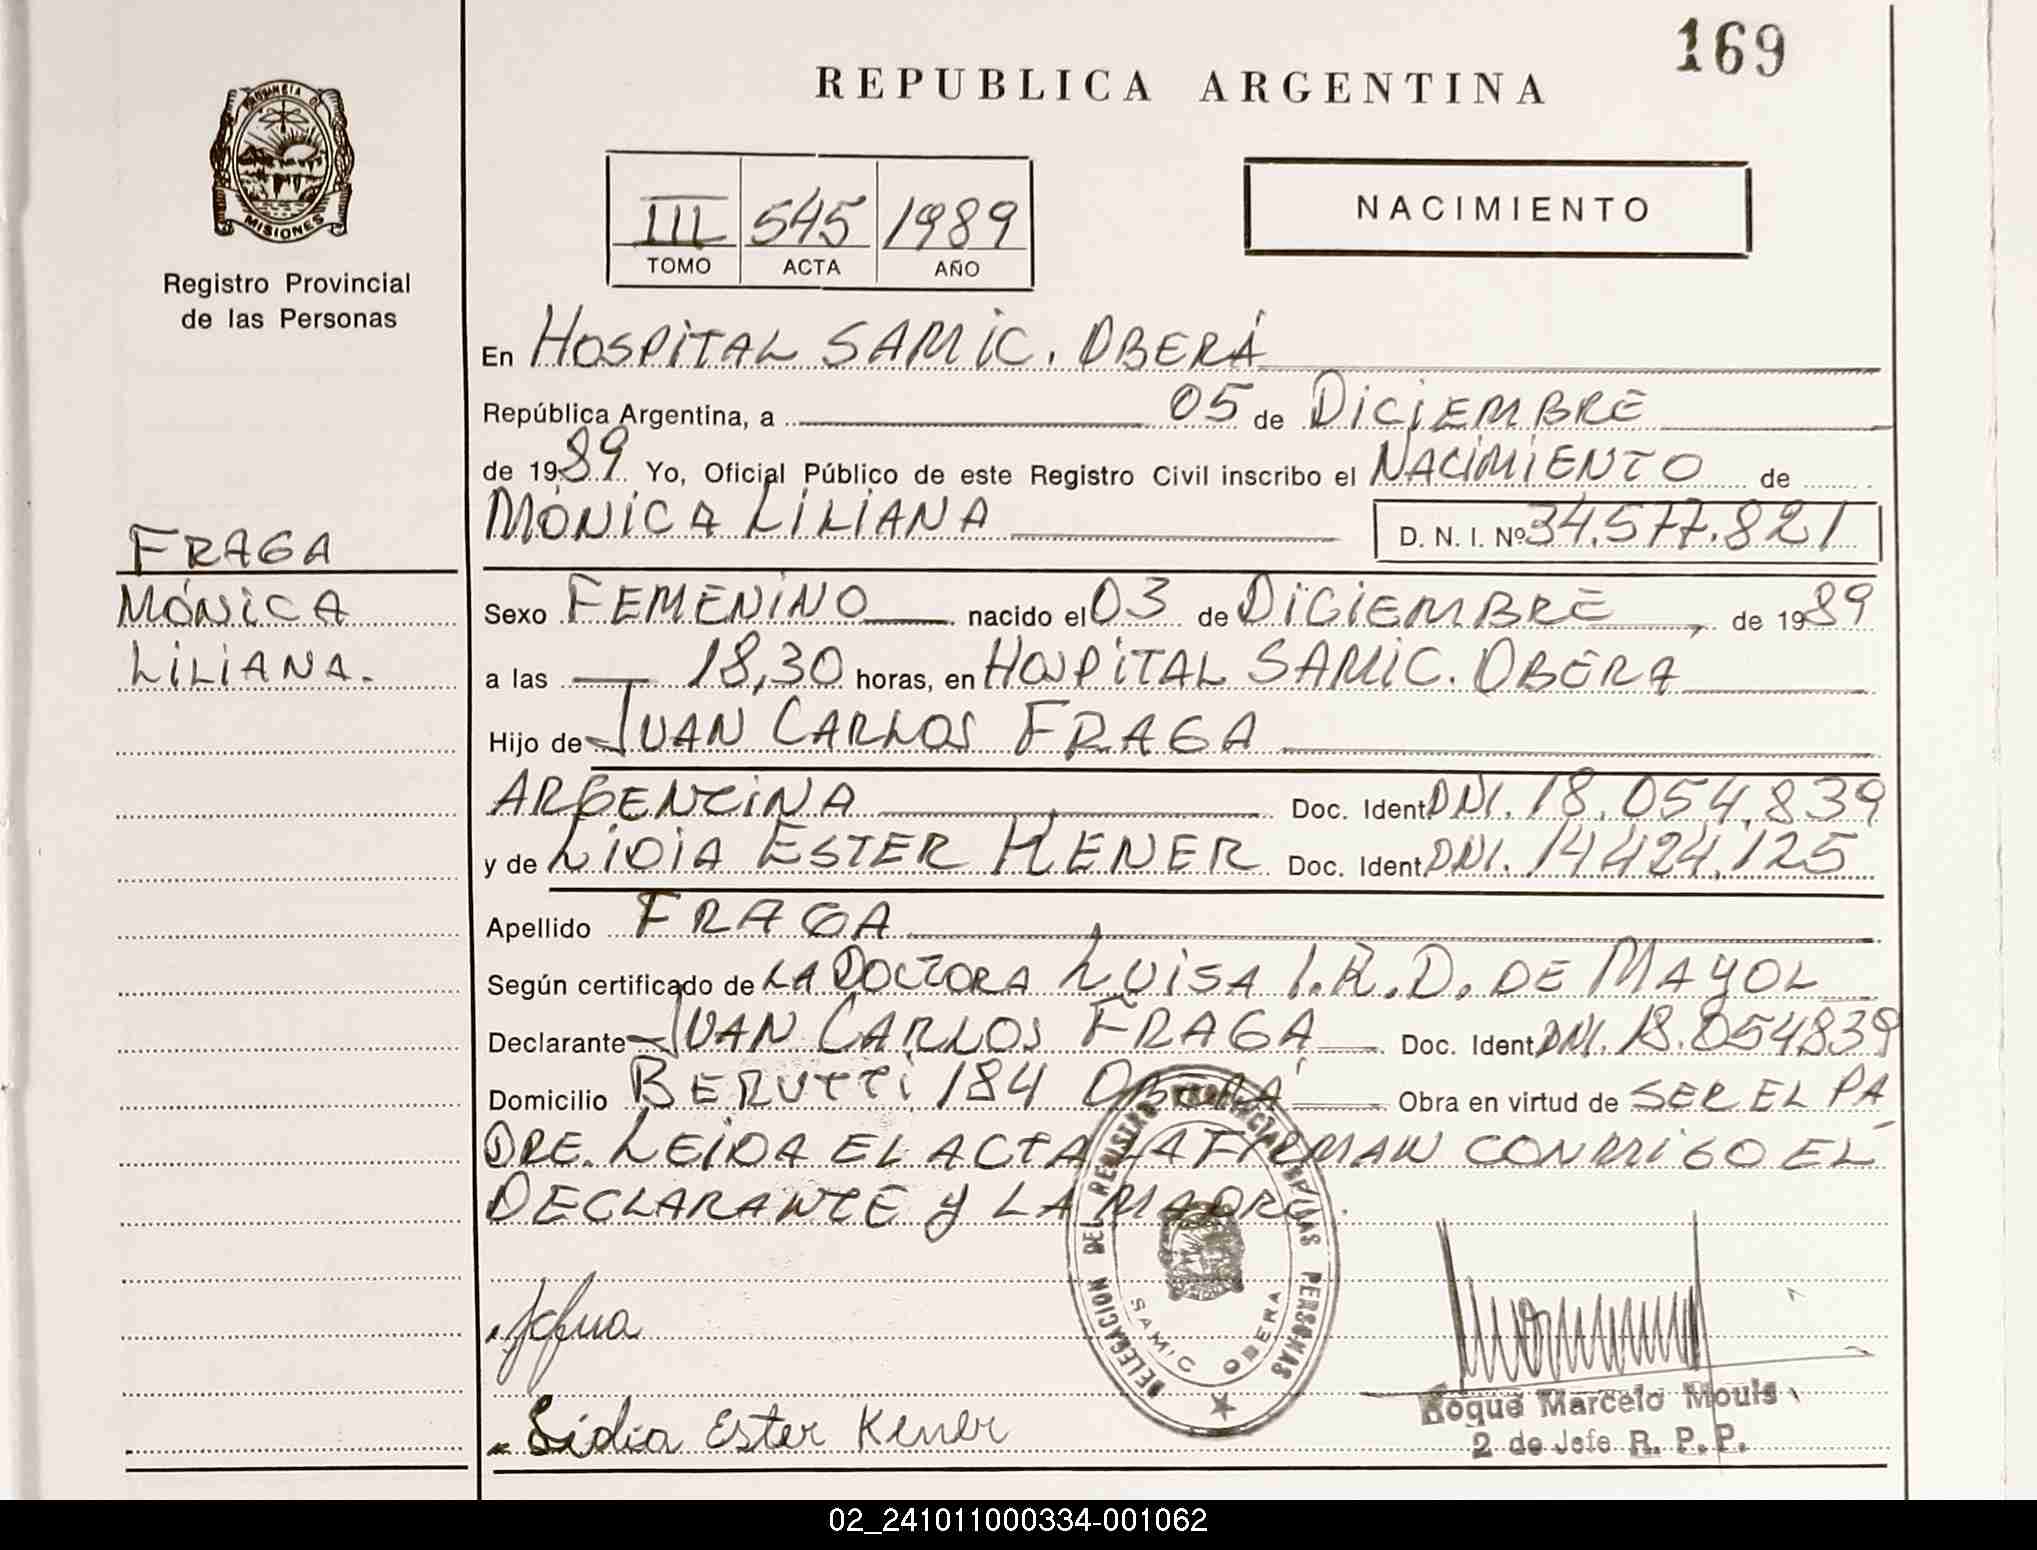 169
REPUBLICA ARGENTINA
PROVINCIA DE
MISIONES
Registro Provincial
de las Personas
III 545 1989
TOMO ACTA AÑO
NACIMIENTO
En HOSPITAL SAMIC. OBERÁ
República Argentina, a 05 de DICIEMBRE
de 1989 Yo, Oficial Público de este Registro Civil inscribo el NACIMIENTO de
MÓNICA LILIANA D. N. I. Nº 34.577.821
FRAGA
MÓNICA
LILIANA.
Sexo FEMENINO nacido el 03 de DICIEMBRE, de 1989
a las 18,30 horas, en HOSPITAL SAMIC. OBERA
Hijo de JUAN CARLOS FRAGA
ARGENTINA Doc. Ident DNI. 18.054.839
y de LIDIA ESTER KENER Doc. Ident DNI. 14424.125
Apellido FRAGA
Según certificado de LA DOCTORA LUISA I.R.D. DE MAYOL
Declarante JUAN CARLOS FRAGA Doc. Ident DNI. 18.054839
Domicilio BERUTTI 184 OBERÁ Obra en virtud de SER EL PA
DRE. LEIDA EL ACTA LA FIRMAN CONMIGO EL
DECLARANTE Y LA MADRE.
DELEGACION DEL REGISTRO PROVINCIAL DE LAS PERSONAS
SAMIC OBERA
Lidia Ester Kener
Roque Marcelo Mouis
2 de Jefe R. P. P.
02_241011000334-001062